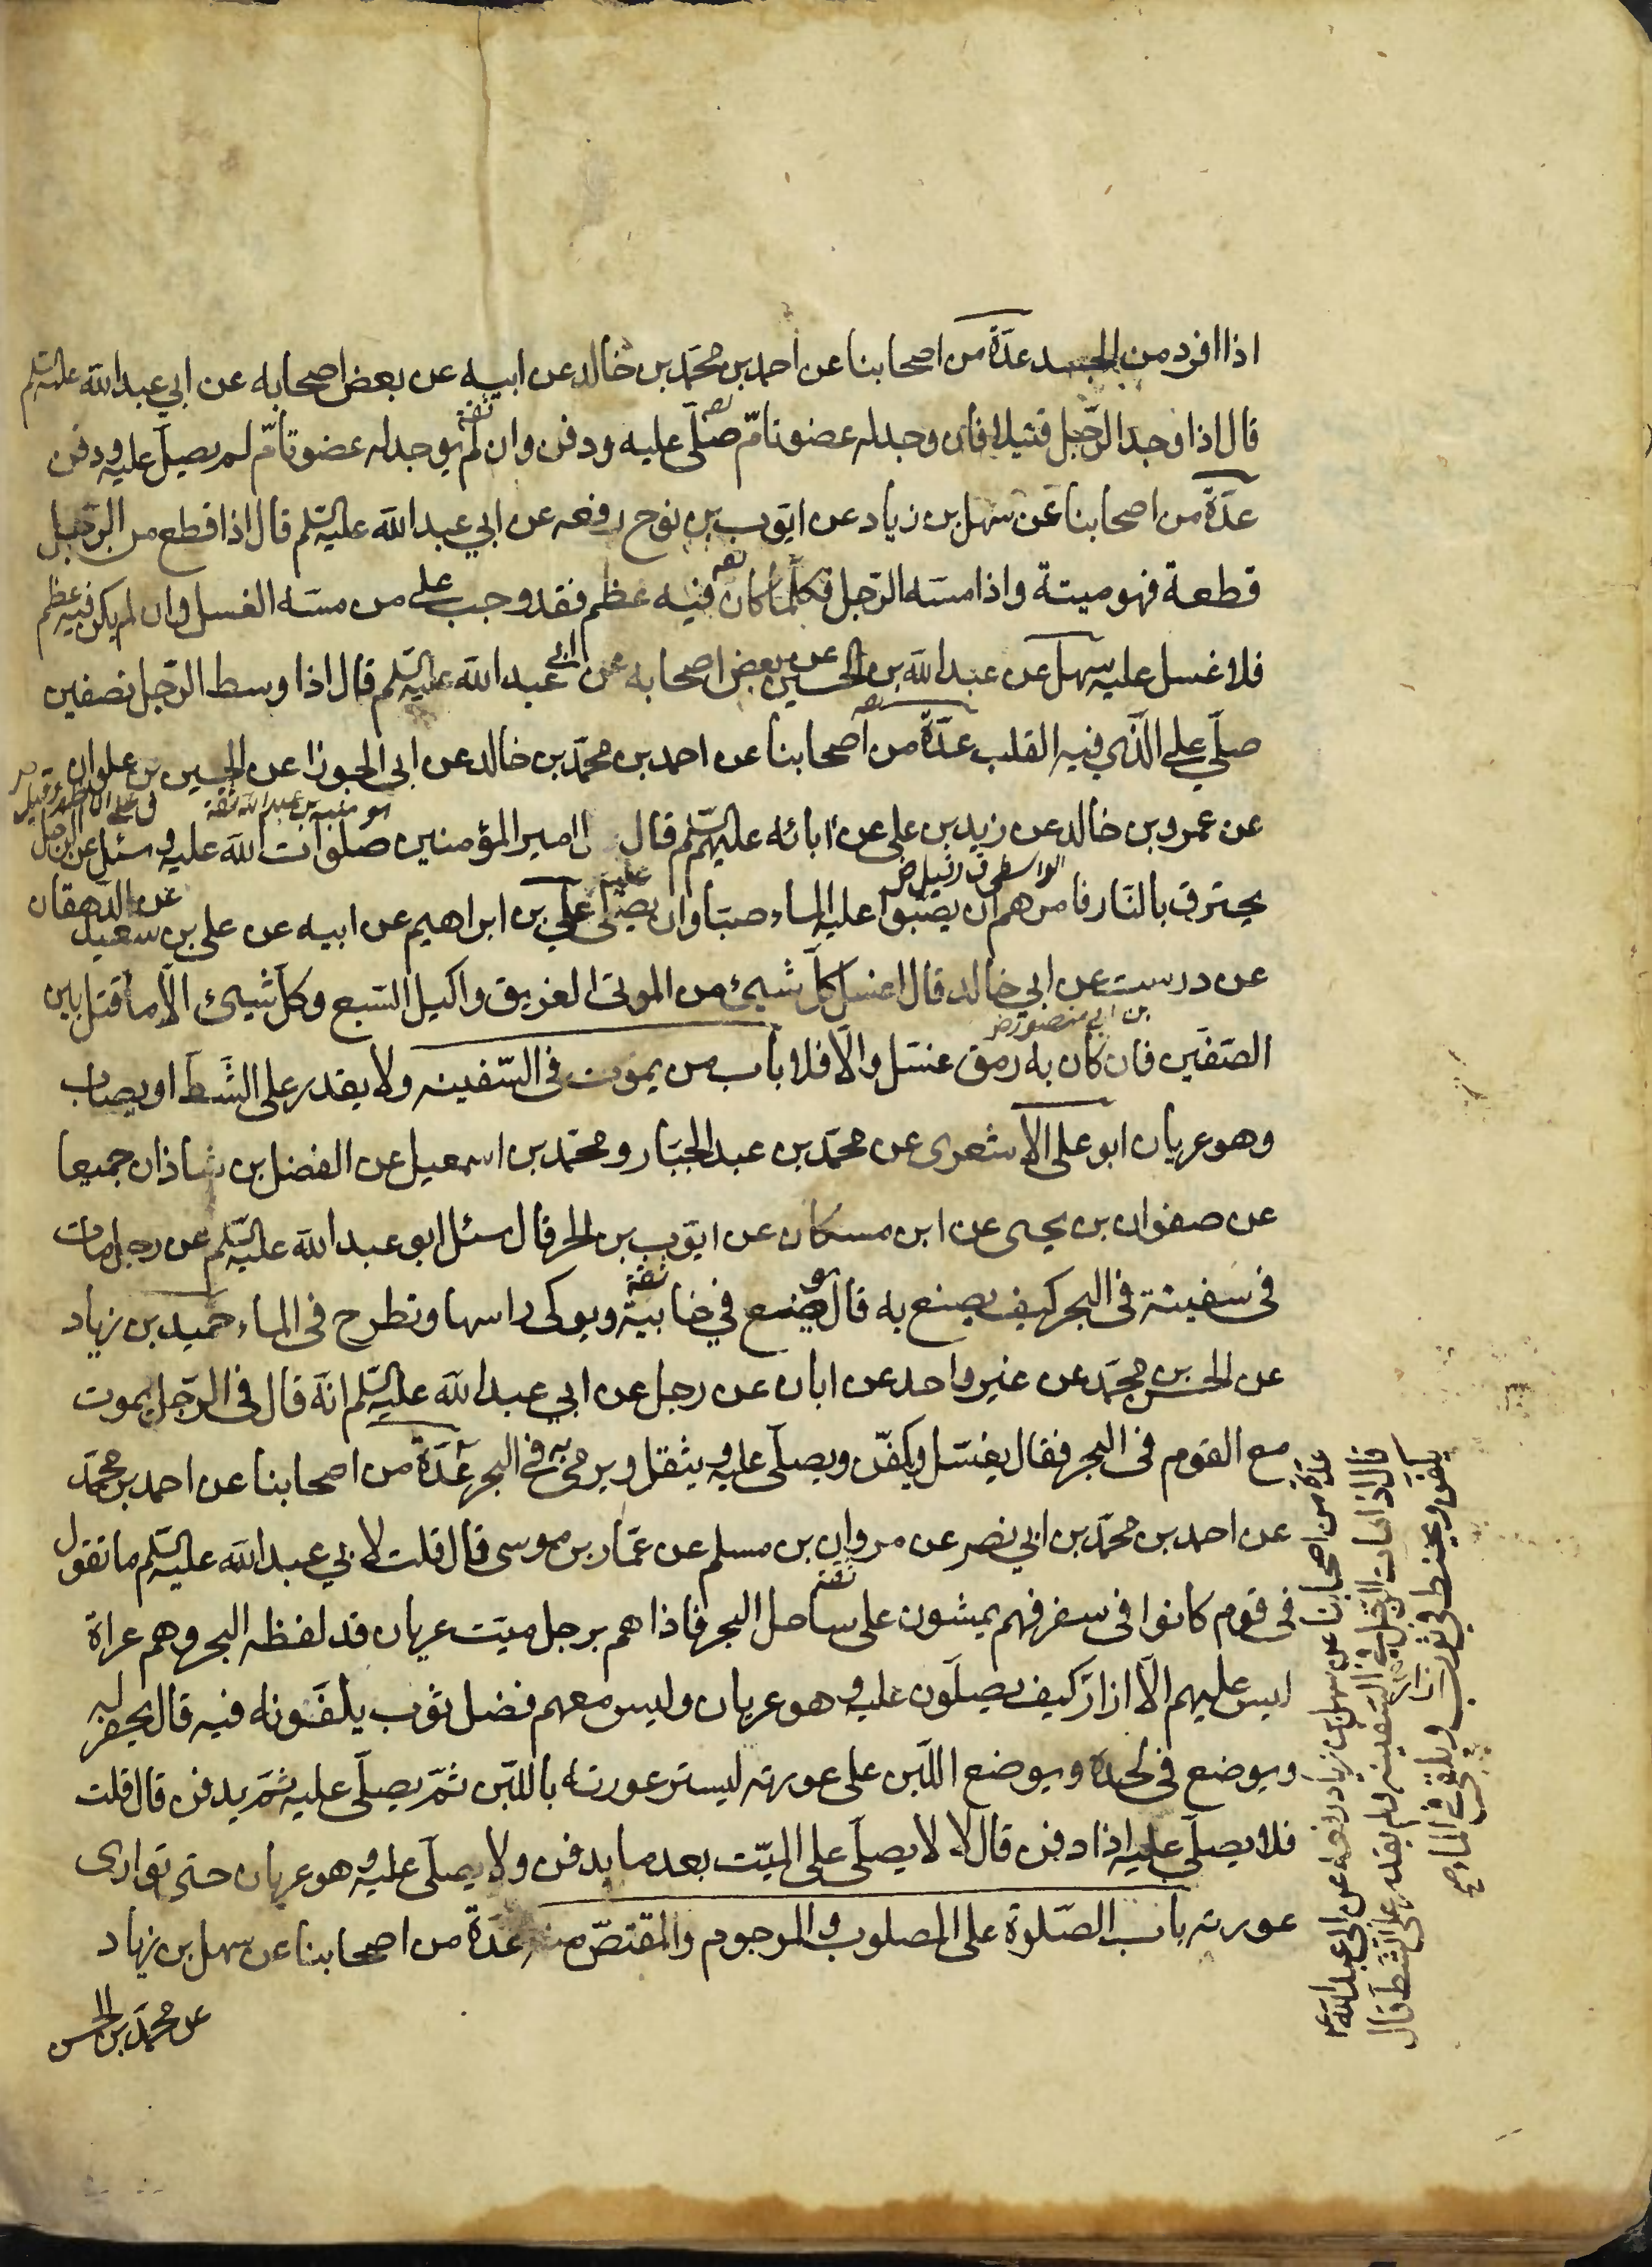 اذا افرد من الجسد عدّة من اصحابنا عن احمد بن محمّد بن خالد عن ابيه عن بعض اصحابه عن ابي عبد الله عليه السلم
قال اذا وجد الرّجل قتيلا فان وجد له عضو تامّ صلّى عليه ودفن وان لم يوجد له عضو تامّ لم يصلّ عليه ودفن
عدّة من اصحابنا عن سهل بن زياد عن ايّوب بن نوح رفعه عن ابي عبد الله عليه السلم قال اذا قطع من الرّجل
قطعة فهو ميتة واذا مسّه الرّجل فكلّما كان فيه عظم فقد وجب على من مسّه الغسل وان لم يكن فيه عظم
فلا غسل عليه سهل عن عبد الله بن الحسين عن بعض اصحابه عن ابي عبد الله عليه السلم قال اذا وسط الرّجل نصفين
صلّي على الّذي فيه القلب عدّة من اصحابنا عن احمد بن محمّد بن خالد عن ابي الجوزا عن الحسين بن علوان
هو منبه بن عبد الله ثقة
عن عمرو بن خالد عن زيد بن علي عن ابائه عليهم السلم قال امير المؤمنين صلوات الله عليه وسئل عن الرجل
الواسطي
يحترق بالنّار فامرهم ان يصبّوا عليه الماء صبّا وان يصلّى عليه علي بن ابراهيم عن ابيه عن علي بن سعيد عن الدهقان
عن درست عن ابي خالد قال اغسل كلّ شيئ من الموتى الغريق واكيل السّبع وكلّ شيئ الّا ما قتل بين
بن ابي منصور
الصّفّين فان كان به رمق غسّل والّا فلا باب من يموت في السّفينه ولا يقدر على الشّطّ او يصاب
وهو عريان ابو علي الاشعري عن محمّد بن عبد الجبّار ومحمّد بن اسمعيل عن الفضل بن شاذان جميعا
عن صفوان بن يحيى عن ابن مسكان عن ايّوب بن الحر قال سئل ابو عبد الله عليه السلم عن رجل مات
ثقة
في سفينة في البحر كيف يصنع به قال يوضع في خابية ويوكى راسها وتطرح في الماء حميد بن زياد
عن الحسن بن محمّد عن غير واحد عن ابان عن رجل عن ابي عبد الله عليه السلم انّه قال في الرّجل يموت
مع القوم في البحر فقال يغسّل ويكفّن ويصلّى عليه ويثقل ويرمى به في البحر عدّة من اصحابنا عن احمد بن محمّد
عن احمد بن محمّد بن ابي نصر عن مروان بن مسلم عن عمّار بن موسى قال قلت لابي عبد الله عليه السلم ما تقول
ثقة
في قوم كانوا في سفر فهم يمشون على ساحل البحر فاذا هم برجل ميّت عريان قد لفظه البحر وهم عراة
ليس عليهم الّا ازار كيف يصلّون عليه وهو عريان وليس معهم فضل ثوب يلفّونه فيه قال يحفر له
ويوضع في لحده ويوضع اللّبن على عورته ليستر عورته باللّبن ثمّ يصلّى عليه ثمّ يدفن قال قلت
فلا يصلّى عليه اذا دفن قال لا لا يصلّى على الميّت بعد ما يدفن ولا يصلّى عليه وهو عريان حتى توارى
عورته باب الصّلوة على المصلوب والمرجوم والمقتصّ منه عدّة من اصحابنا عن سهل بن زياد
عن محمّد بن الحسن
عدّة من اصحابنا عن سهل بن زياد رفعه عن ابي عبد الله ع
قال اذا مات الرّجل في السّفينه ولم يقدر على الشّطّ قال
يكفن ويحنط في ثوب ويلقى في الماء صح